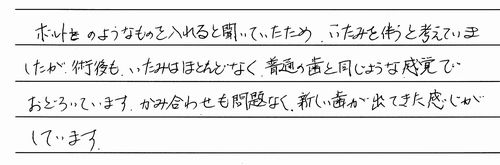 ボルトをのようなものを入れると聞いていたため、いたみを伴うと考えていま
したが、術後も、いたみはほとんどなく、普通の歯と同じような感覚で
おどろいています。かみ合わせも問題なく、新しい歯が出てきた感じが
しています。